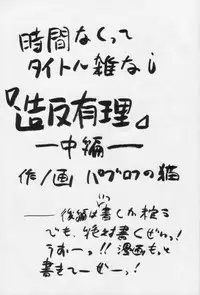 時間なくって
タイトル雑なし
『造反有理』
―中編―
作/画 パブロフの猫
――後編はいつ書くか
でも、絶対書くぜわっ!
うおーっ!!漫画もっと
書きてーぜーっ!